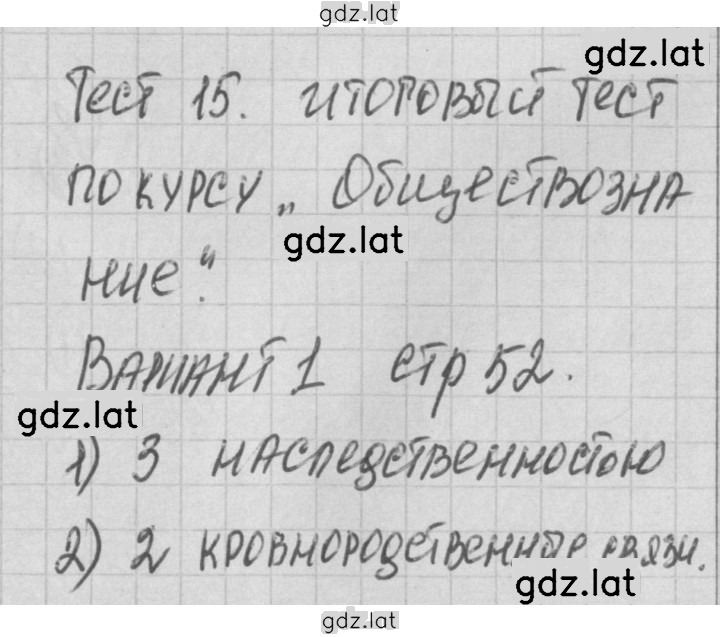 gdz.lat
gdz.lat
Тест 15. итоговый тест
по курсу „Обществозна
ние“.
gdz.lat
Вариант 1 стр 52.
gdz.lat
1) 3 наследственностью
2) 2 кровнородственные связи.
gdz.lat
gdz.lat